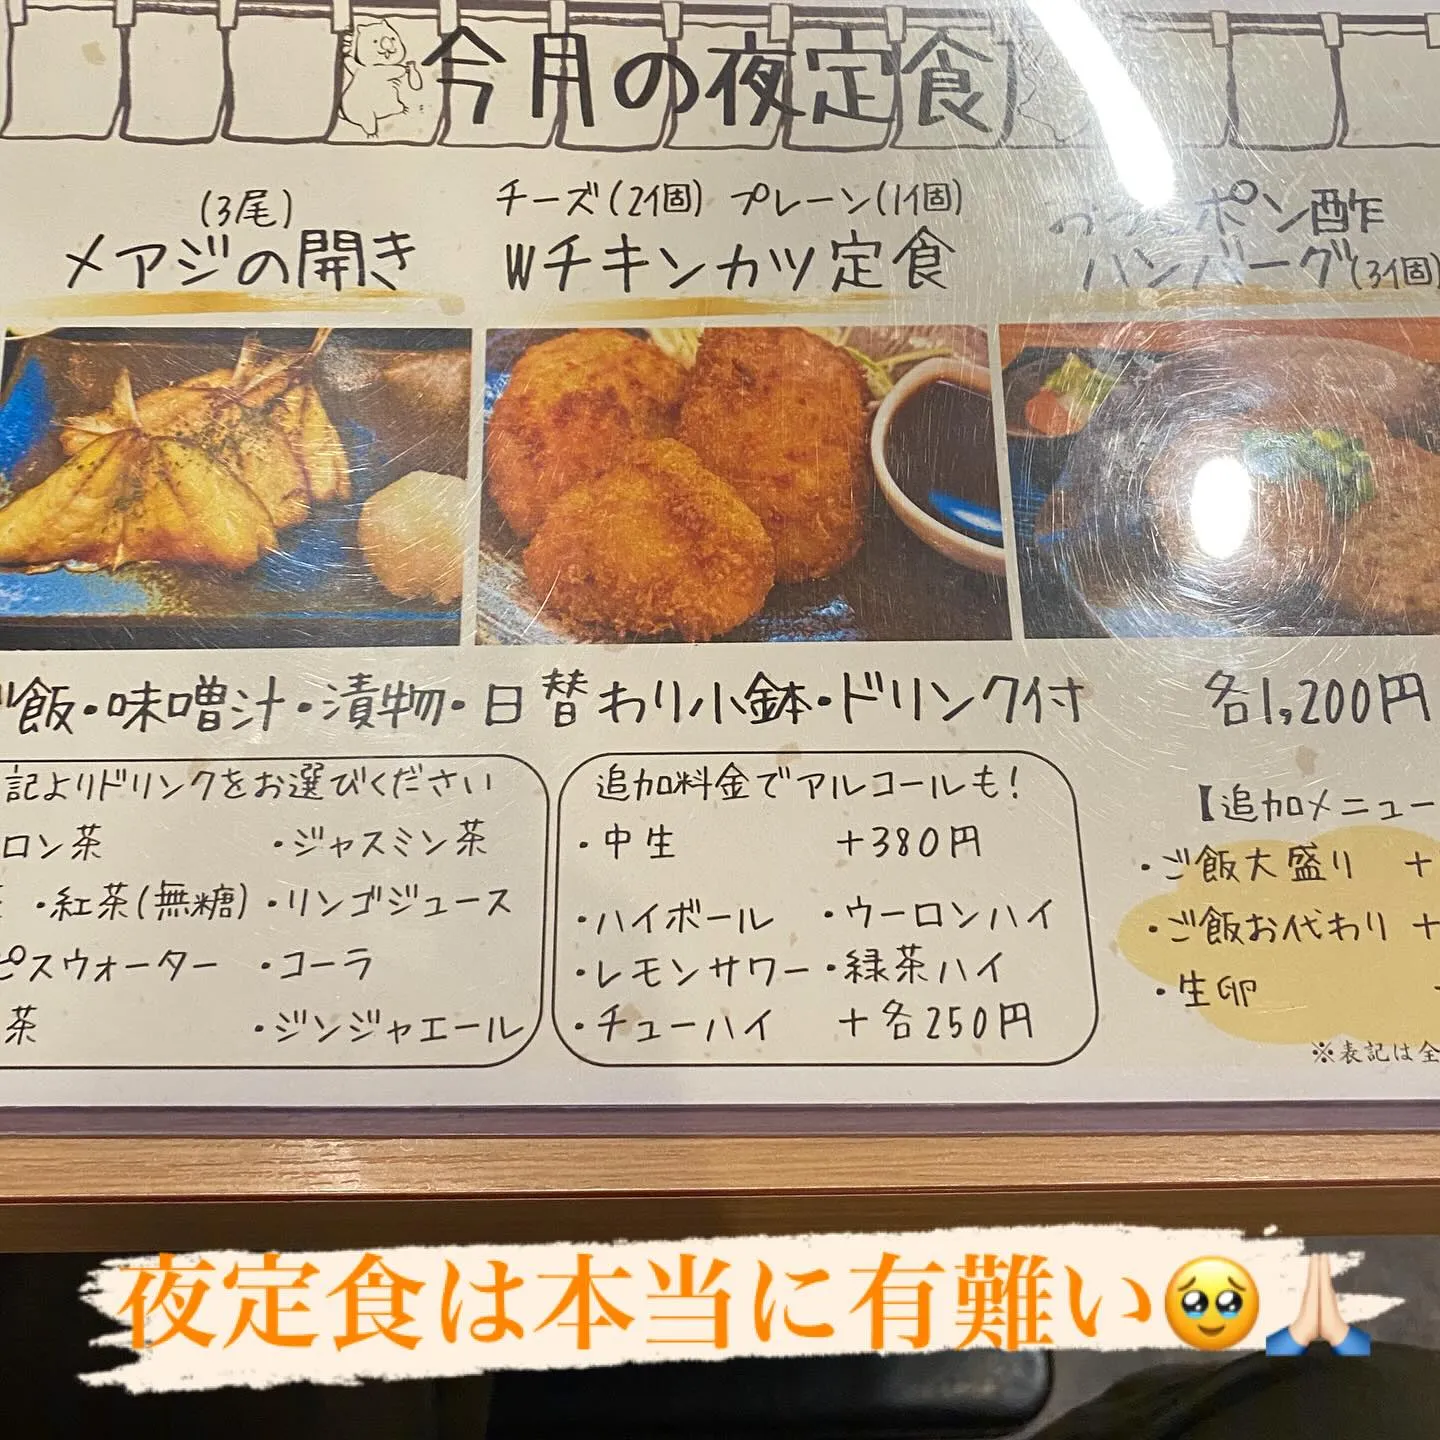 今月の夜定食
(3尾)
メアジの開き
チーズ(2個) プレーン(1個)
Wチキンカツ定食
ポン酢
ハンバーグ(3個)
飯・味噌汁・漬物・日替わり小鉢・ドリンク付 各1,200円
記よりドリンクをお選びください
ロン茶 ・ジャスミン茶
・紅茶(無糖) ・リンゴジュース
ピスウォーター ・コーラ
茶 ・ジンジャエール
追加料金でアルコールも!
・中生 +380円
・ハイボール ・ウーロンハイ
・レモンサワー ・緑茶ハイ
・チューハイ +各250円
【追加メニュー
・ご飯大盛り +
・ご飯お代わり +
・生卵
※表記は全
夜定食は本当に有難い🥹🙏🏻